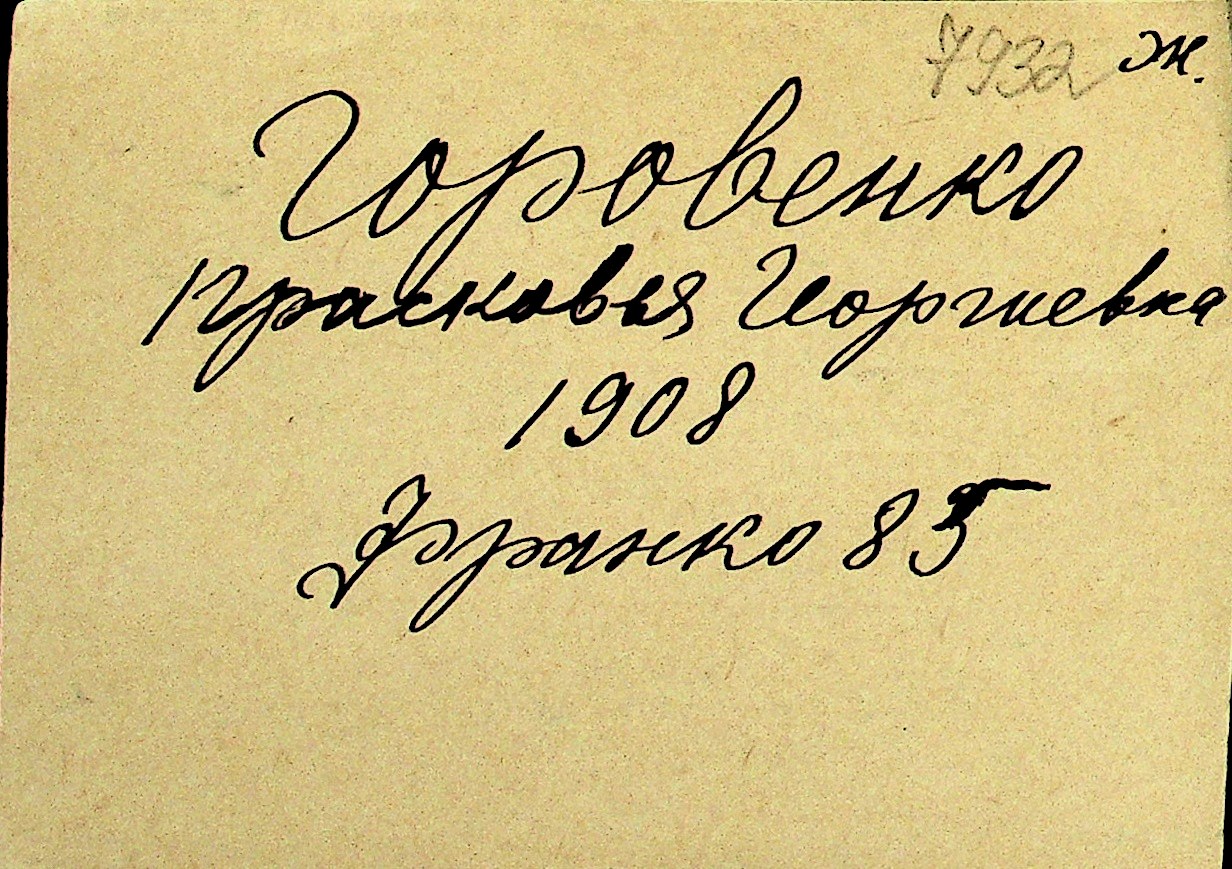 7932 ж.
Горовенко
Прасковья Георгиевна
1908
Франко 85